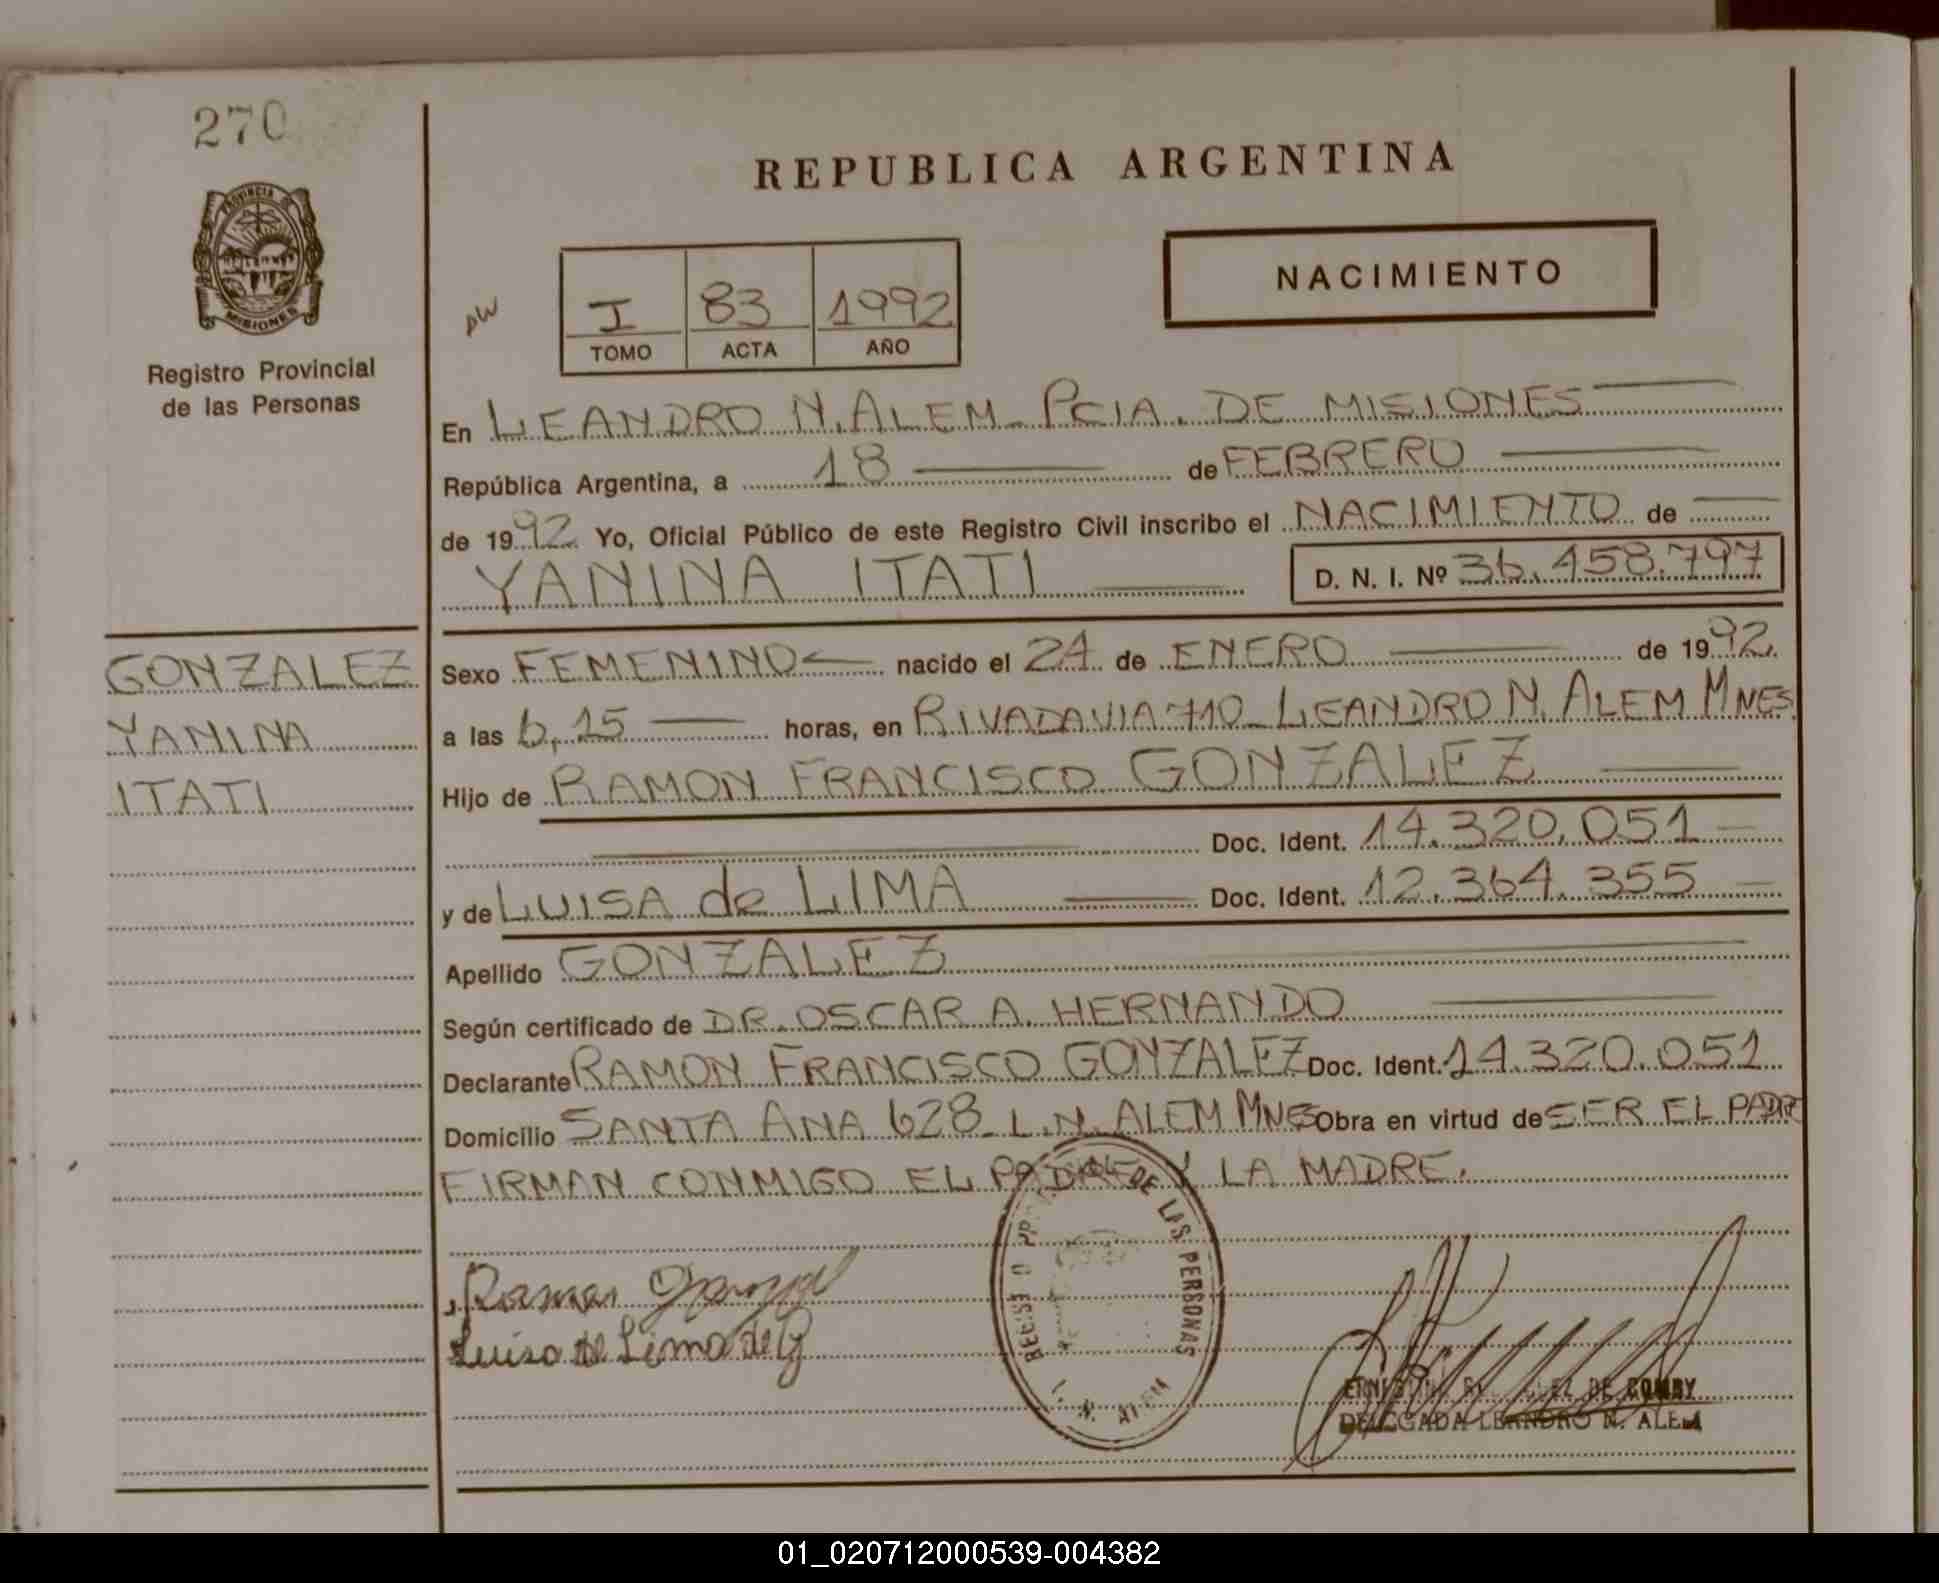 270
PROVINCIA DE
MISIONES
Registro Provincial
de las Personas
REPUBLICA ARGENTINA
NACIMIENTO
I 83 1992
TOMO ACTA AÑO
En LEANDRO N. ALEM - PCIA. DE MISIONES
República Argentina, a 18 de FEBRERO
de 1992 Yo, Oficial Público de este Registro Civil inscribo el NACIMIENTO de
YANINA ITATI D. N. I. Nº 36.458.797
GONZALEZ
YANINA
ITATI
Sexo FEMENINO nacido el 24 de ENERO de 1992
a las 6,15 horas, en RIVADAVIA 710 - LEANDRO N. ALEM MNES
Hijo de RAMON FRANCISCO GONZALEZ
Doc. Ident. 14.320.051
y de LUISA de LIMA Doc. Ident. 12.364.355
Apellido GONZALEZ
Según certificado de DR. OSCAR A. HERNANDO
Declarante RAMON FRANCISCO GONZALEZ Doc. Ident. 14.320.051
Domicilio SANTA ANA 628 - L.N. ALEM MNES Obra en virtud de SER EL PADRE
FIRMAN CONMIGO EL PADRE Y LA MADRE.
Ramon
Luisa de Lima de G
DE LAS PERSONAS
L. N. ALEM
DE
DELEGADA LEANDRO N. ALEM
01_020712000539-004382